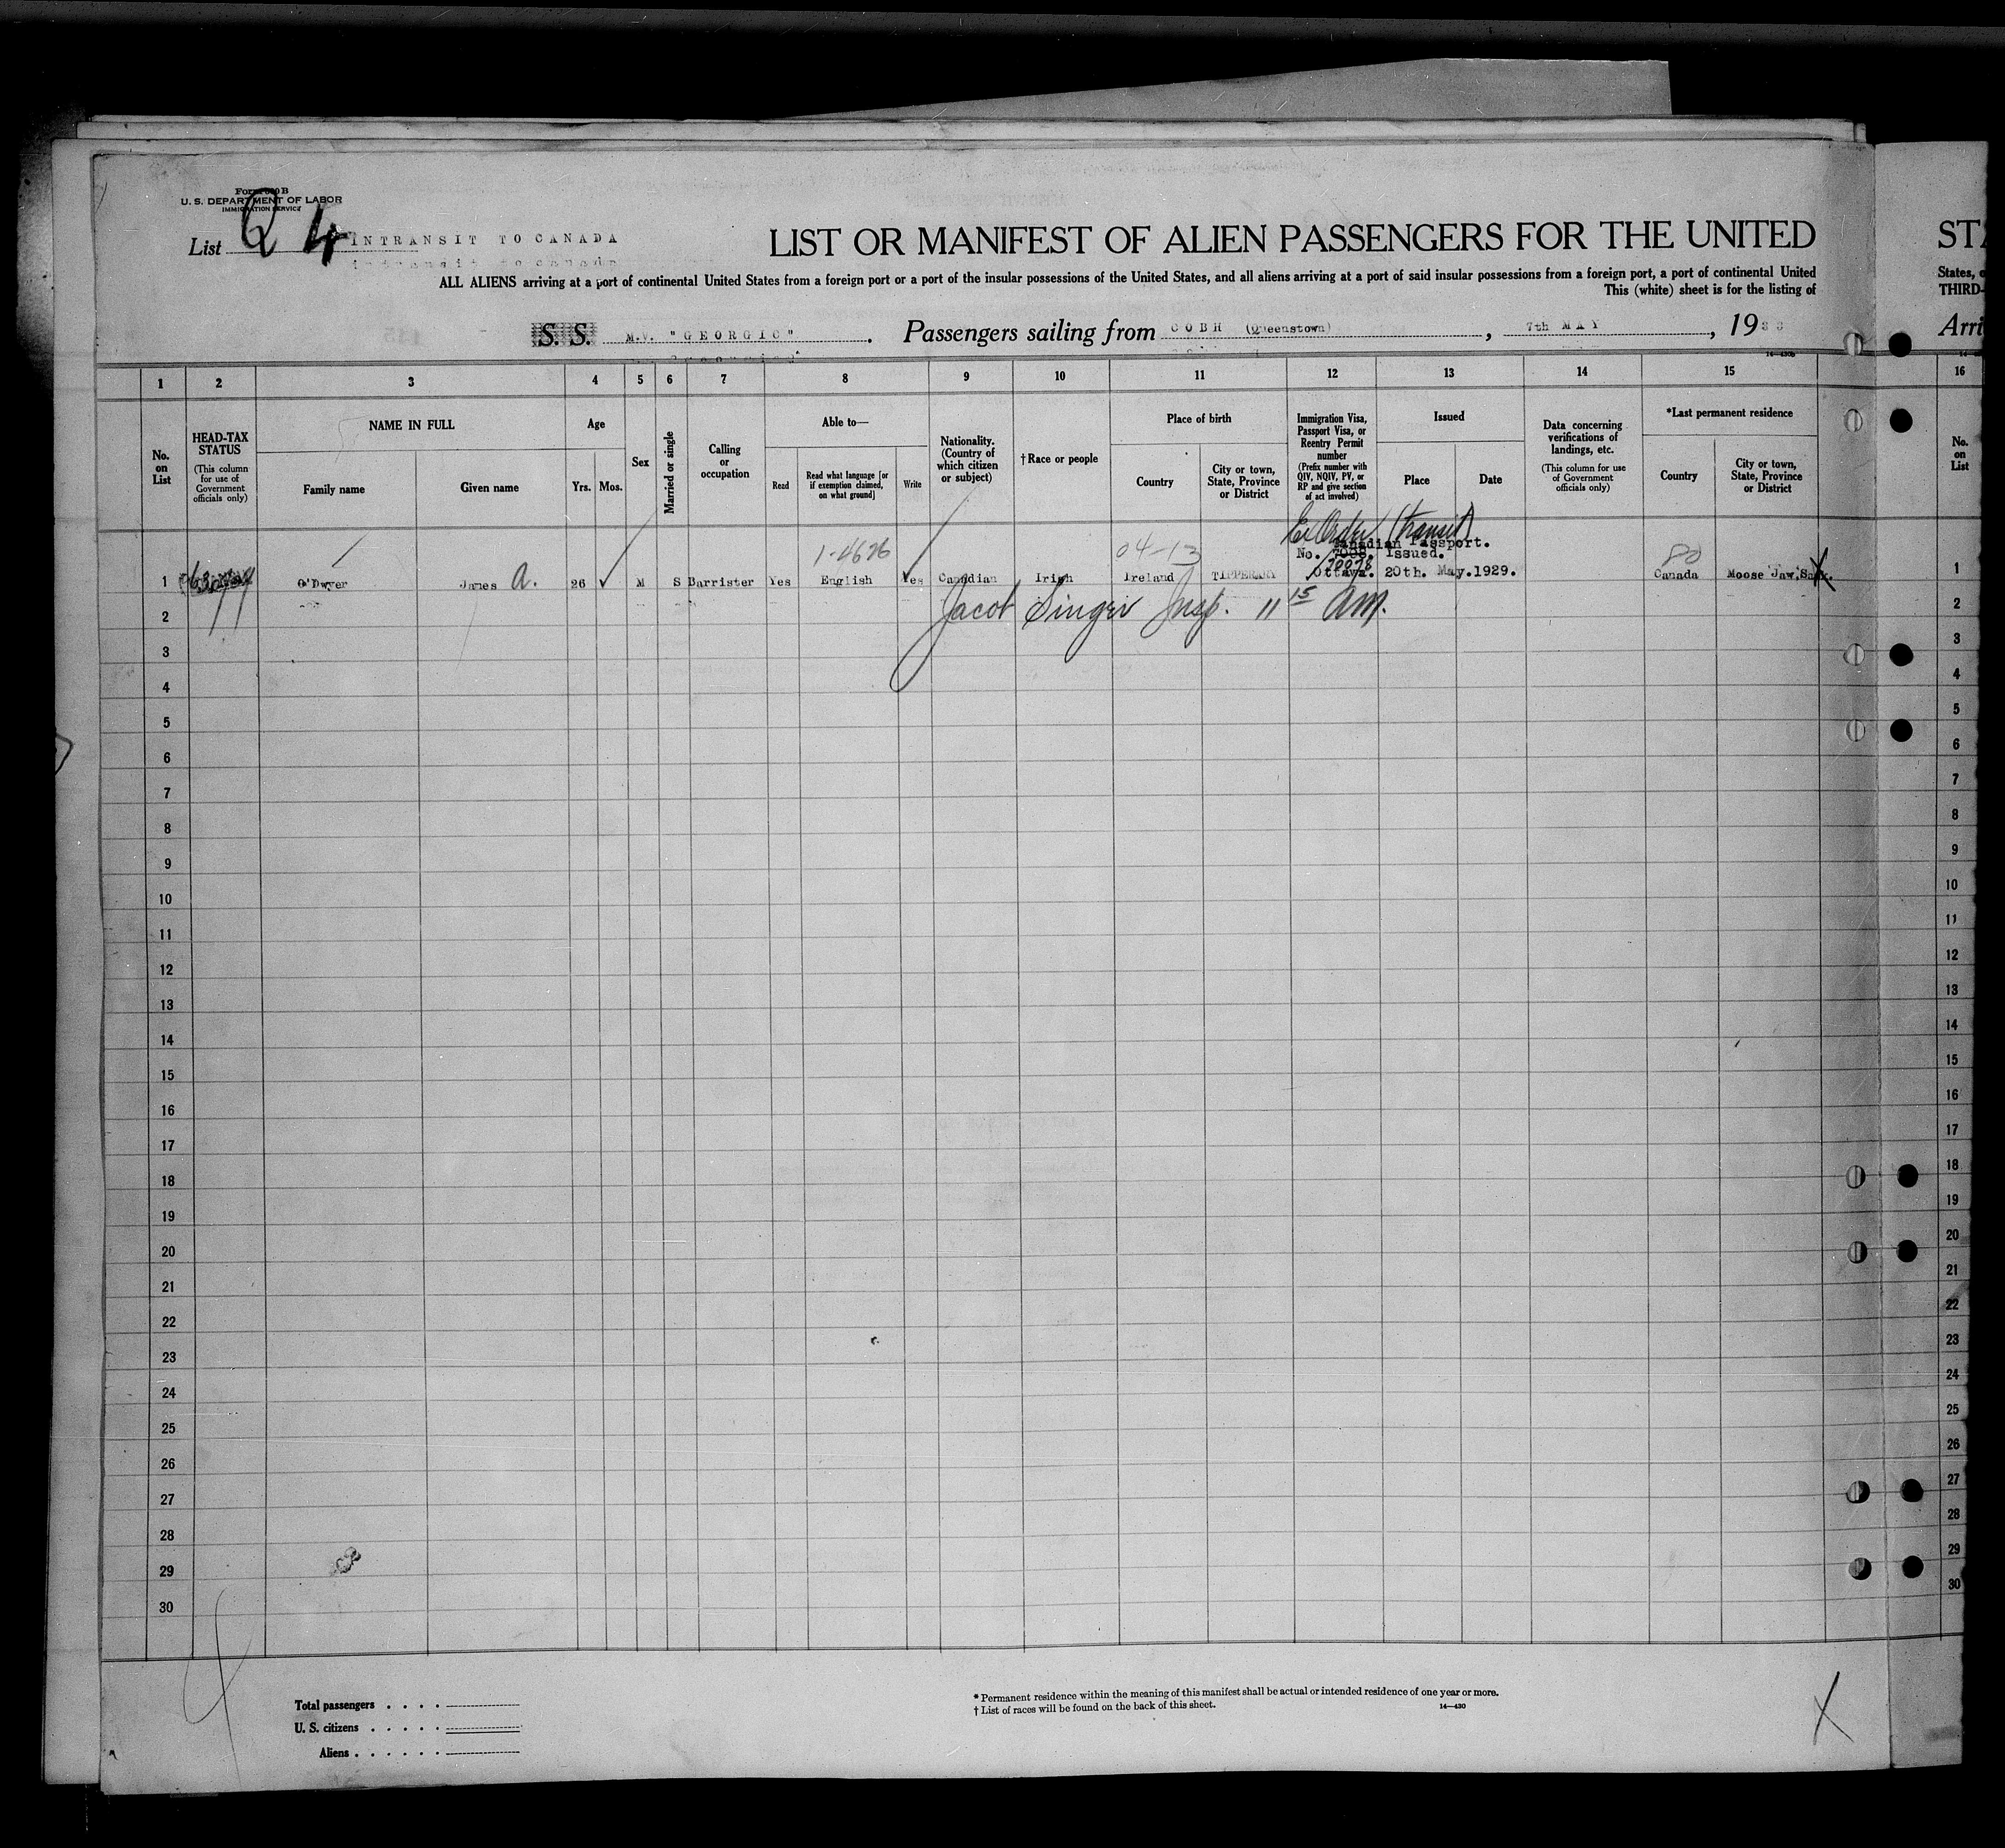 Form 500 B
U. S. DEPARTMENT OF LABOR
IMMIGRATION SERVICE
List Q 4 INTRANSIT TO CANADA
LIST OR MANIFEST OF ALIEN PASSENGERS FOR THE UNITED
STA
ALL ALIENS arriving at a port of continental United States from a foreign port or a port of the insular possessions of the United States, and all aliens arriving at a port of said insular possessions from a foreign port, a port of continental United
States, o
This (white) sheet is for the listing of
THIRD-
S. S. M.V. "GEORGIC". Passengers sailing from COBH (Queenstown), 7th MAY, 1933
Arri
14—430b
1 2 3 4 5 6 7 8 9 10 11 12 13 14 15 16
No. on List
HEAD-TAX STATUS
(This column for use of Government officials only)
NAME IN FULL
Family name
Given name
Age
Yrs. Mos.
Sex
Married or single
Calling or occupation
Able to—
Read
Read what language [or if exemption claimed, on what ground]
Write
Nationality. (Country of which citizen or subject)
†Race or people
Place of birth
Country
City or town, State, Province or District
Immigration Visa, Passport Visa, or Reentry Permit number
(Prefix number with QIV, NQIV, PV, or RP and give section of act involved)
Issued
Place
Date
Data concerning verifications of landings, etc.
(This column for use of Government officials only)
*Last permanent residence
Country
City or town, State, Province or District
No. on List
Ex Order (transit)
Canadian Passport.
1-4626 04-13 No. Issued. 80
70078
1 O'Dwyer James A. 26 M S Barrister Yes English Yes Canadian Irish Ireland TIPPERARY Ottawa. 20th. May.1929. Canada Moose Jaw,Sask. 1
Jacob Singer Insp. 11 15 AM.
2 2
3 3
4 4
5 5
6 6
7 7
8 8
9 9
10 10
11 11
12 12
13 13
14 14
15 15
16 16
17 17
18 18
19 19
20 20
21 21
22 22
23 23
24 24
25 25
26 26
27 27
28 28
29 29
30 30
Total passengers . . . .
U. S. citizens . . . . .
Aliens . . . . . .
* Permanent residence within the meaning of this manifest shall be actual or intended residence of one year or more.
† List of races will be found on the back of this sheet.
14—430